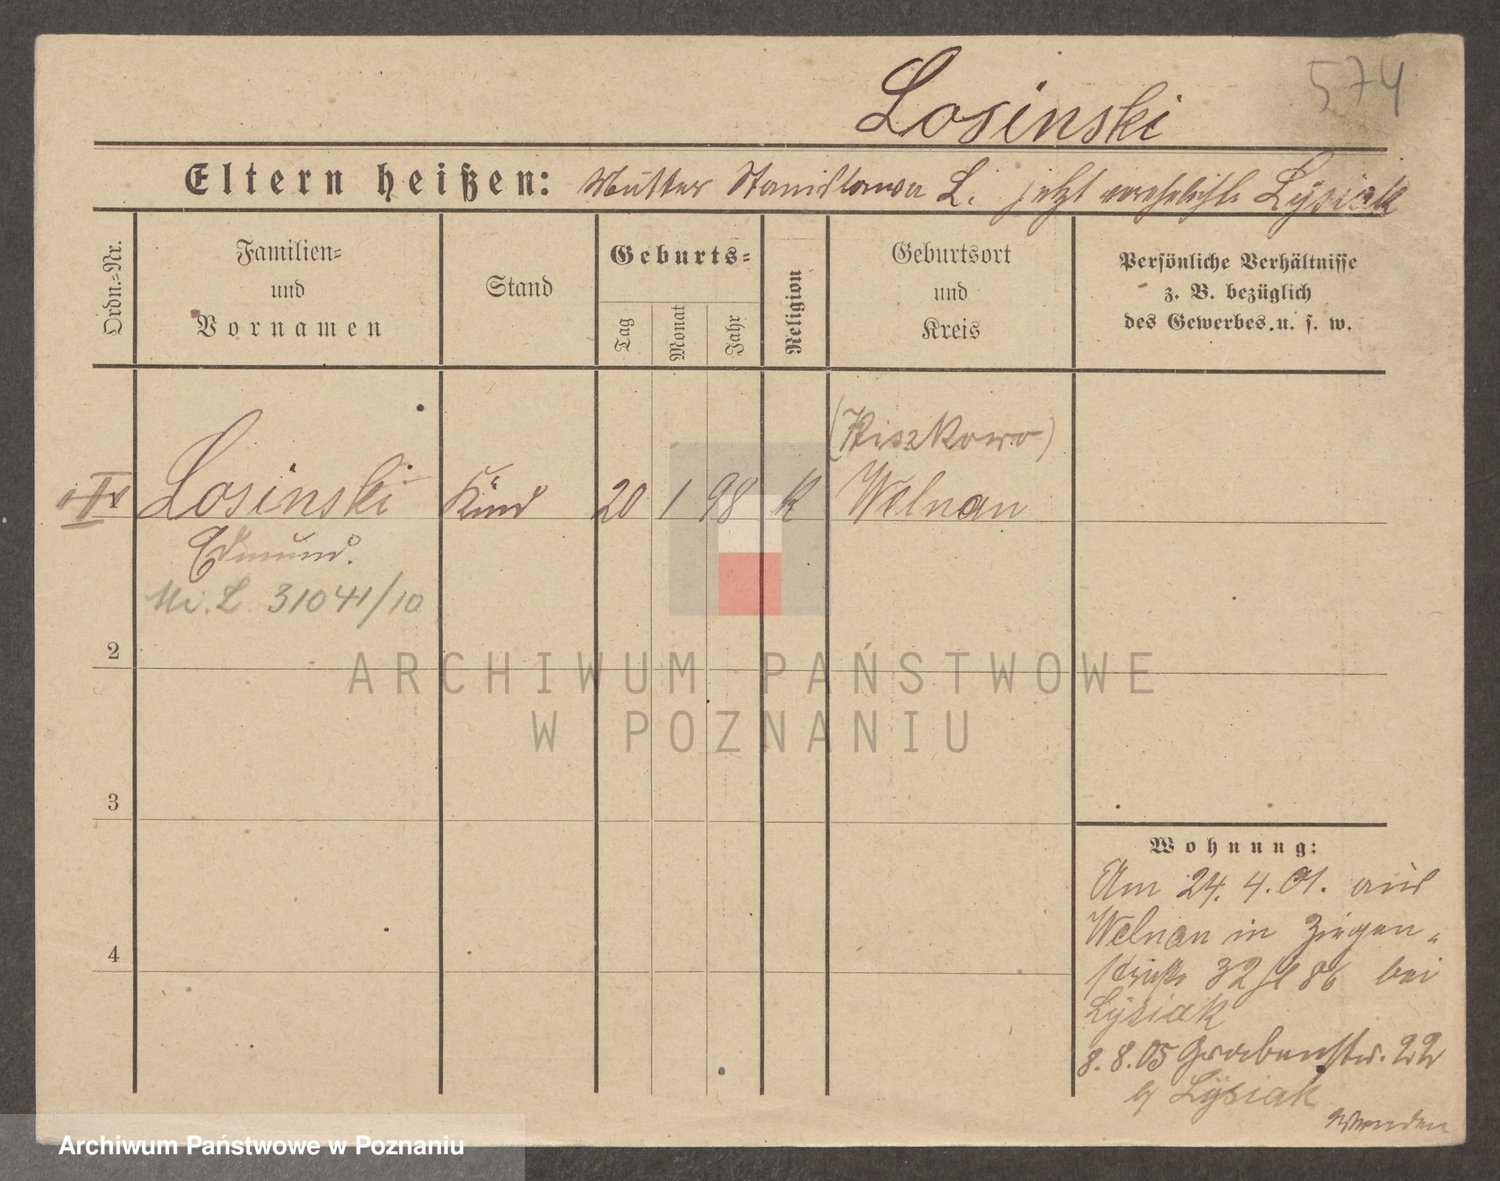 574
Losinski
Eltern heißen: Mutter Stanislawa L. jetzt verehelichte Lysiak
Ordn.-Nr.
Familien-
und
Vornamen
Stand
Geburts-
Tag
Monat
Jahr
Religion
Geburtsort
und
Kreis
Persönliche Verhältnisse
z. B. bezüglich
des Gewerbes u. s. w.
(Kiszkowo)
Losinski Kind 20 1 98 K Welnau
Edmund.
L 31041/10
2
3
4
Wohnung:
Am 24. 4. 01. aus
Welnau in Ziegen-
straße 32 bei
Lysiak
8. 8. 05 Grabenstr. 22
b/ Lysiak
wenden
ARCHIWUM PAŃSTWOWE
W POZNANIU
Archiwum Państwowe w Poznaniu